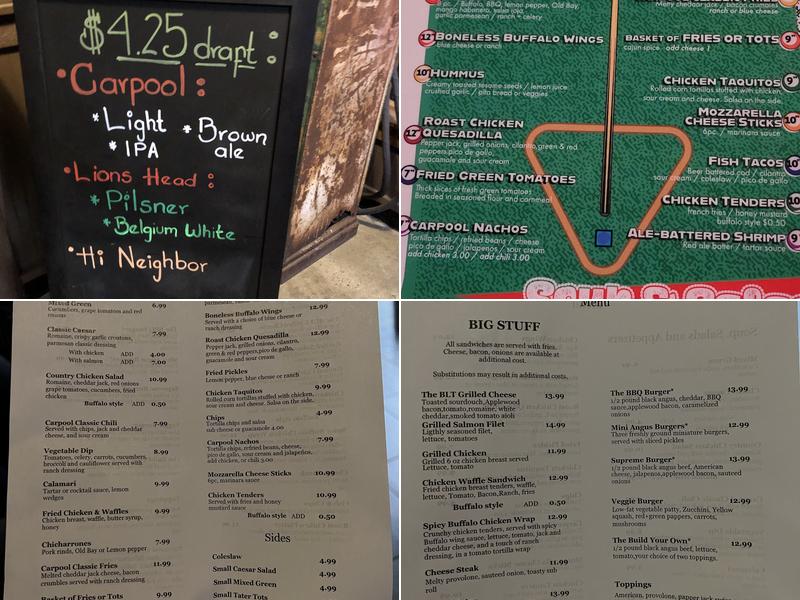 $4.25 draft:
•Carpool:
*Light *Brown ale
*IPA
•Lions Head:
*Pilsner
*Belgium White
•Hi Neighbor
mango habenero, salsa roja,
garlic parmesean / ranch + celery
12" Boneless Buffalo Wings
blue cheese or ranch
10" Hummus
Creamy toasted sesame seeds / lemon juice
crushed garlic / pita bread or veggies
Roast Chicken
12" Quesadilla
Pepper jack, grilled onions, cilantro, green & red
peppers, pico de gallo,
guacamole and sour cream
7" Fried Green Tomatoes
Thick slices of fresh green tomatoes
Breaded in seasoned flour and cornmeal
Carpool Nachos
Tortilla chips / refried beans / cheese
pico de gallo / jalapenos / sour cream
add chicken 3.00 / add chili 3.00
ranch or blue cheese
Basket of Fries or Tots 9"
cajun spice add cheese 1
Chicken Taquitos 9"
Rolled corn tortillas stuffed with chicken,
sour cream and cheese. Salsa on the side.
Mozzarella
Cheese Sticks 10"
6pc. / marinara sauce
Fish Tacos 10"
Beer battered cod / cilantro
sour cream / coleslaw / pico de gallo
Chicken Tenders 10"
french fries / honey mustard
buffalo style $0.50
Ale-Battered Shrimp 9"
Red ale batter / tartar sauce
Mixed Green 6.99
Cucumbers, grape tomatoes and red
onions
Classic Caesar 7.99
Romaine, crispy garlic croutons,
parmesan classic dressing
With chicken ADD 4.00
With salmon ADD 7.00
Country Chicken Salad 10.99
Romaine, cheddar jack, red onions
grape tomatoes, cucumbers, fried
chicken
Buffalo style ADD 0.50
Carpool Classic Chili 7.99
Served with chips, jack and cheddar
cheese, and sour cream
Vegetable Dip 8.99
Tomatoes, celery, carrots, cucumbers,
broccoli and cauliflower served with
ranch dressing
Calamari 9.99
Tartar or cocktail sauce, lemon
wedges
Fried Chicken & Waffles 9.99
Chicken breast, waffle, butter syrup,
honey
Chicharrones 7.99
Pork rinds, Old Bay or Lemon pepper
Carpool Classic Fries 11.99
Melted cheddar jack cheese, bacon
crumbles served with ranch dressing
Basket of Fries or Tots 9.99
Boneless Buffalo Wings 12.99
Served with a choice of blue cheese or
ranch dressing
Roast Chicken Quesadilla 12.99
Pepper jack, grilled onions, cilantro,
green & red peppers, pico de gallo,
guacamole and sour cream
Fried Pickles 7.99
Lemon pepper, blue cheese or ranch
Chicken Taquitos 9.99
Rolled corn tortillas stuffed with chicken,
sour cream and cheese. Salsa on the side.
Chips 4.99
Tortilla chips and salsa
sub cheese or guacamole 4.00
Carpool Nachos 7.99
Tortilla chips, refried beans, cheese,
pico de gallo, sour cream and jalapeños,
add chicken, or chili 3.00
Mozzarella Cheese Sticks 10.99
6pc, marinara sauce
Chicken Tenders 10.99
Served with fries and honey
mustard sauce
Buffalo style ADD 0.50
Sides
Coleslaw 4.99
Small Caesar Salad 4.99
Small Mixed Green 4.99
Small Tater Tots
Menu
BIG STUFF
All sandwiches are served with fries.
Cheese, bacon, onions are available at
additional cost.
Substitutions may result in additional costs.
The BLT Grilled Cheese 13.99
Toasted sourdough,Applewood
bacon,tomato,romaine, white
cheddar,smoked tomato aioli
Grilled Salmon Filet 14.99
Ligthly seasoned filet,
lettuce, tomatoes
Grilled Chicken 11.99
Grilled 6 oz chicken breast served
Lettuce, tomato
Chicken Waffle Sandwich 12.99
Fried chicken breast tenders, waffle,
lettuce, Tomato, Bacon,Ranch, fries
Buffalo style ADD 0.50
Spicy Buffalo Chicken Wrap 12.99
Crunchy chicken tenders, served with spicy
Buffalo wing sauce, lettuce, tomato, jack and
cheddar cheese, and a touch of ranch
dressing, in a tomato tortilla wrap
Cheese Steak 11.99
Melty provolone, sauteed onion, toasty sub
roll
13.99
The BBQ Burger* 13.99
1/2 pound black angus, cheddar, BBQ
sauce,applewood bacon, caramelized
onions
Mini Angus Burgers* 12.99
Three freshly ground miniature burgers,
served with sliced pickles
Supreme Burger* 13.99
1/2 pound black angus beef, American
cheese, jalapenos,applewood bacon, sauteed
onions
Veggie Burger 12.99
Low-fat vegetable patty, Zucchini, Yellow
squash, red+green pappers, carrots,
mushrooms
The Build Your Own* 12.99
1/2 pound black angus beef, lettuce,
tomato,your choice of two toppings.
Toppings
American, provolone, papper jack